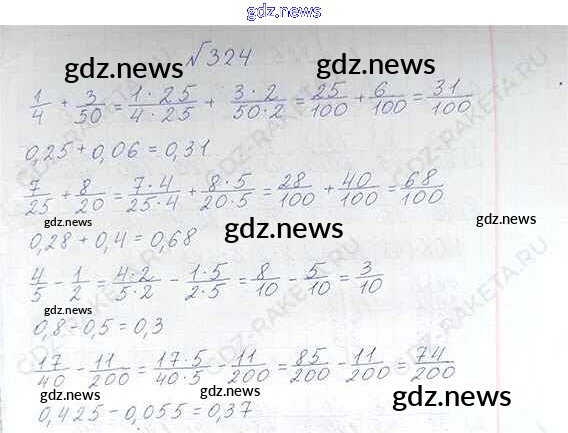 gdz.news
√324
gdz.news gdz.news
1/4 + 3/50 = 1·25/4·25 + 3·2/50·2 = 25/100 + 6/100 = 31/100
0,25+0,06=0,31
GDZ-RAKETA.RU
7/25 + 8/20 = 7·4/25·4 + 8·5/20·5 = 28/100 + 40/100 = 68/100
gdz.news gdz.news gdz.news
0,28+0,4=0,68
4/5 - 1/2 = 4·2/5·2 - 1·5/2·5 = 8/10 - 5/10 = 3/10
gdz.news gdz.news
0,8-0,5=0,3
17/40 - 11/200 = 17·5/40·5 - 11/200 = 85/200 - 11/200 = 74/200
gdz.news gdz.news gdz.news
0,425-0,055=0,37